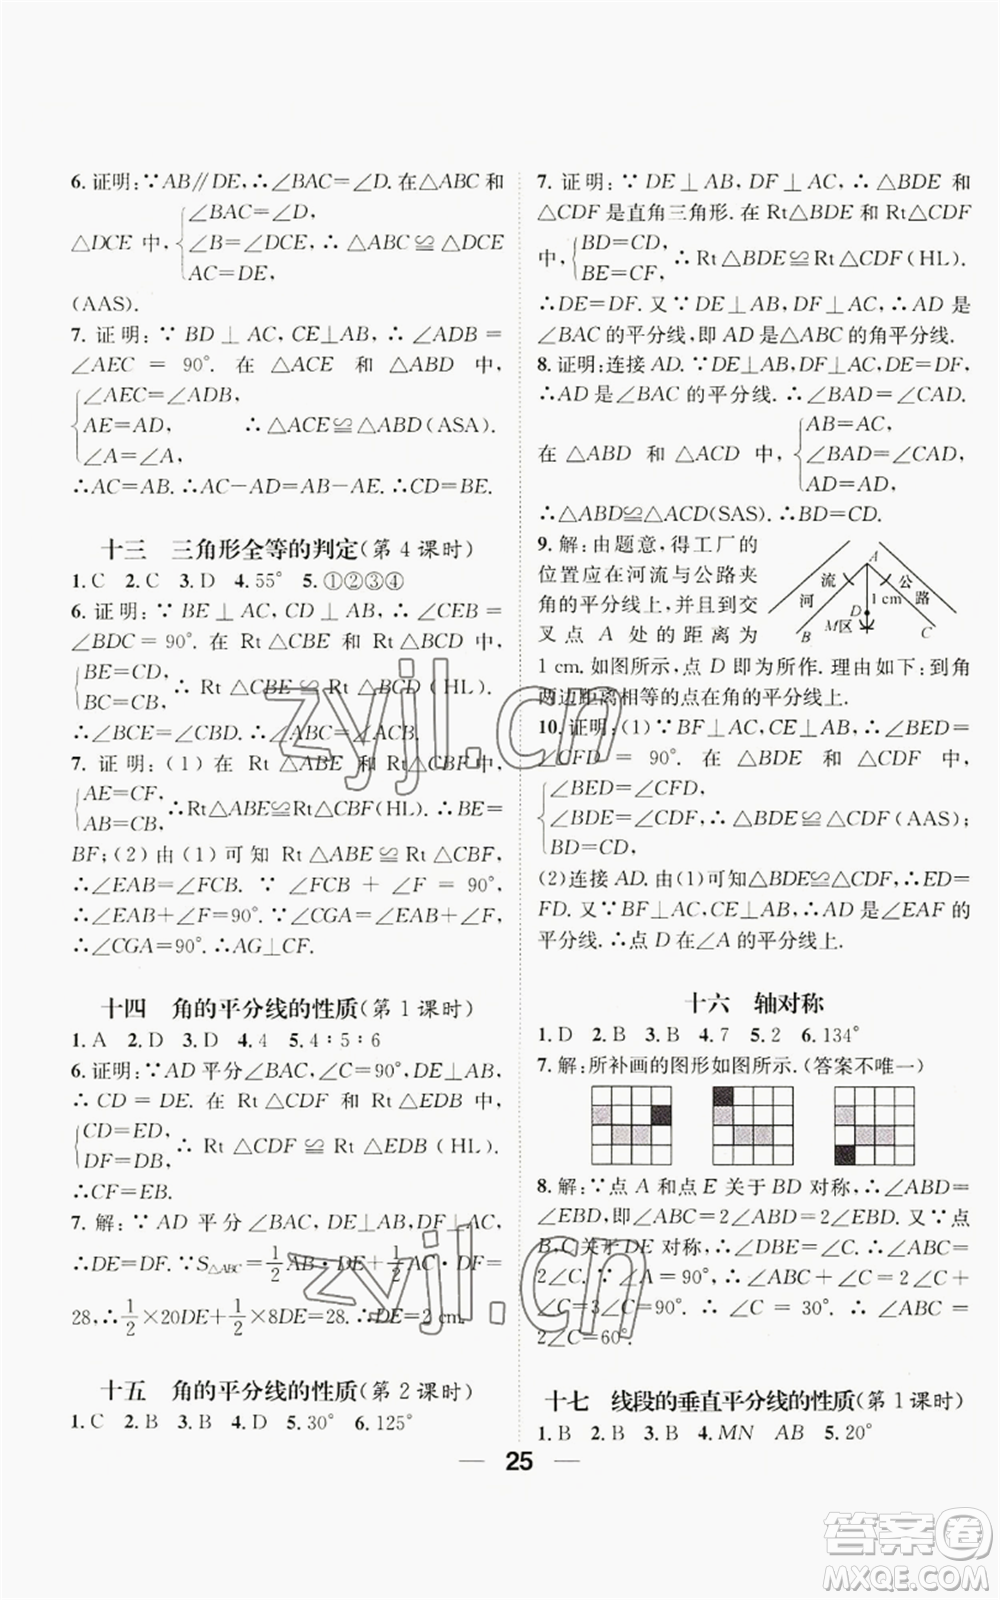 6. 证明:∵AB∥DE,∴∠BAC=∠D. 在△ABC 和
△DCE 中,{∠BAC=∠D,
∠B=∠DCE,∴△ABC≌△DCE
AC=DE,
(AAS).
7. 证明:∵ BD⊥AC,CE⊥AB,∴∠ADB=
∠AEC = 90°. 在 △ACE 和 △ABD 中,
{∠AEC=∠ADB,
AE=AD, ∴△ACE≌△ABD(ASA).
∠A=∠A,
∴AC=AB. ∴AC-AD=AB-AE. ∴CD=BE.
十三 三角形全等的判定(第 4 课时)
1. C 2. C 3. D 4. 55° 5. ①②③④
6. 证明:∵ BE⊥AC, CD⊥AB, ∴∠CEB=
∠BDC=90°. 在 Rt△CBE 和 Rt△BCD 中,
{BE=CD,
BC=CB, ∴ Rt△CBE≌Rt△BCD(HL).
∴∠BCE=∠CBD. ∴∠ABC=∠ACB.
7. 证明:(1) 在 Rt△ABE 和 Rt△CBF中,
{AE=CF,
AB=CB, ∴Rt△ABE≌Rt△CBF(HL). ∴BE=
BF;(2) 由 (1) 可知 Rt△ABE≌Rt△CBF,
∴∠EAB=∠FCB. ∵∠FCB+∠F=90°,
∴∠EAB+∠F=90°. ∵∠CGA=∠EAB+∠F,
∴∠CGA=90°. ∴AG⊥CF.
十四 角的平分线的性质(第 1 课时)
1. A 2. D 3. D 4. 4 5. 4∶5∶6
6. 证明:∵AD 平分∠BAC,∠C=90°,DE⊥AB,
∴ CD=DE. 在 Rt△CDF 和 Rt△EDB 中,
{CD=ED,
DF=DB, ∴ Rt△CDF≌Rt△EDB(HL).
∴CF=EB.
7. 解:∵ AD 平分∠BAC,DE⊥AB,DF⊥AC,
∴DE=DF. ∵S△ABC=1/2AB·DE+1/2AC·DF=
28,∴1/2×20DE+1/2×8DE=28. ∴DE=2 cm.
十五 角的平分线的性质(第 2 课时)
1. C 2. B 3. B 4. D 5. 30° 6. 125°
7. 证明:∵ DE⊥AB, DF⊥AC,∴△BDE 和
△CDF 是直角三角形. 在 Rt△BDE 和 Rt△CDF
中,{BD=CD,
BE=CF, ∴Rt△BDE≌Rt△CDF(HL).
∴DE=DF. 又∵DE⊥AB,DF⊥AC,∴AD 是
∠BAC 的平分线,即 AD 是△ABC 的角平分线.
8. 证明:连接 AD. ∵DE⊥AB,DF⊥AC,DE=DF,
∴AD 是∠BAC 的平分线. ∴∠BAD=∠CAD.
在△ABD 和△ACD 中,{AB=AC,
∠BAD=∠CAD,
AD=AD,
∴△ABD≌△ACD(SAS). ∴BD=CD.
9. 解:由题意,得工厂的
位置应在河流与公路夹
角的平分线上,并且到交
叉点 A 处的距离为
1 cm. 如图所示,点 D 即为所作. 理由如下:到角
两边距离相等的点在角的平分线上.
流
河
A
公
路
1 cm
D
M区
B
C
10. 证明:(1)∵BF⊥AC,CE⊥AB,∴∠BED=
∠CFD=90°. 在 △BDE 和 △CDF 中,
{∠BED=∠CFD,
∠BDE=∠CDF, ∴△BDE≌△CDF(AAS);
BD=CD,
(2)连接 AD. 由(1)可知△BDE≌△CDF,∴ED=
FD. 又∵BF⊥AC,CE⊥AB,∴AD 是∠EAF 的
平分线. ∴点 D 在∠A 的平分线上.
十六 轴对称
1. D 2. B 3. B 4. 7 5. 2 6. 134°
7. 解:所补画的图形如图所示. (答案不唯一)
8. 解:∵点 A 和点 E 关于 BD 对称,∴∠ABD=
∠EBD,即∠ABC=2∠ABD=2∠EBD. 又∵点
B,C 关于 DE 对称,∴∠DBE=∠C. ∴∠ABC=
2∠C. ∵∠A=90°,∴∠ABC+∠C=2∠C+
∠C=3∠C=90°. ∴∠C=30°. ∴∠ABC=
2∠C=60°.
十七 线段的垂直平分线的性质(第 1 课时)
1. B 2. B 3. B 4. MN AB 5. 20°
25
zyjl.cn
zyjl.cn
答案卷
MXQE.COM